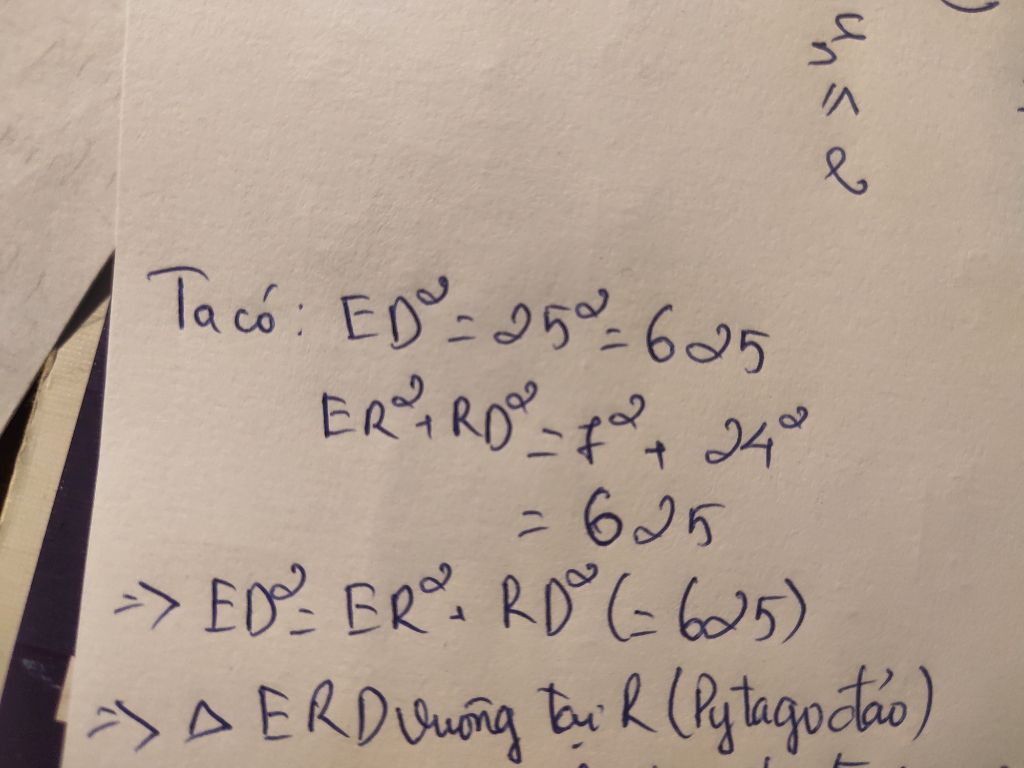 Ta có: ED² = 25² = 625
ER² + RD² = 7² + 24²
= 625
=> ED² = ER² + RD² (= 625)
=> Δ ERD vuông tại R (Pytago đảo)